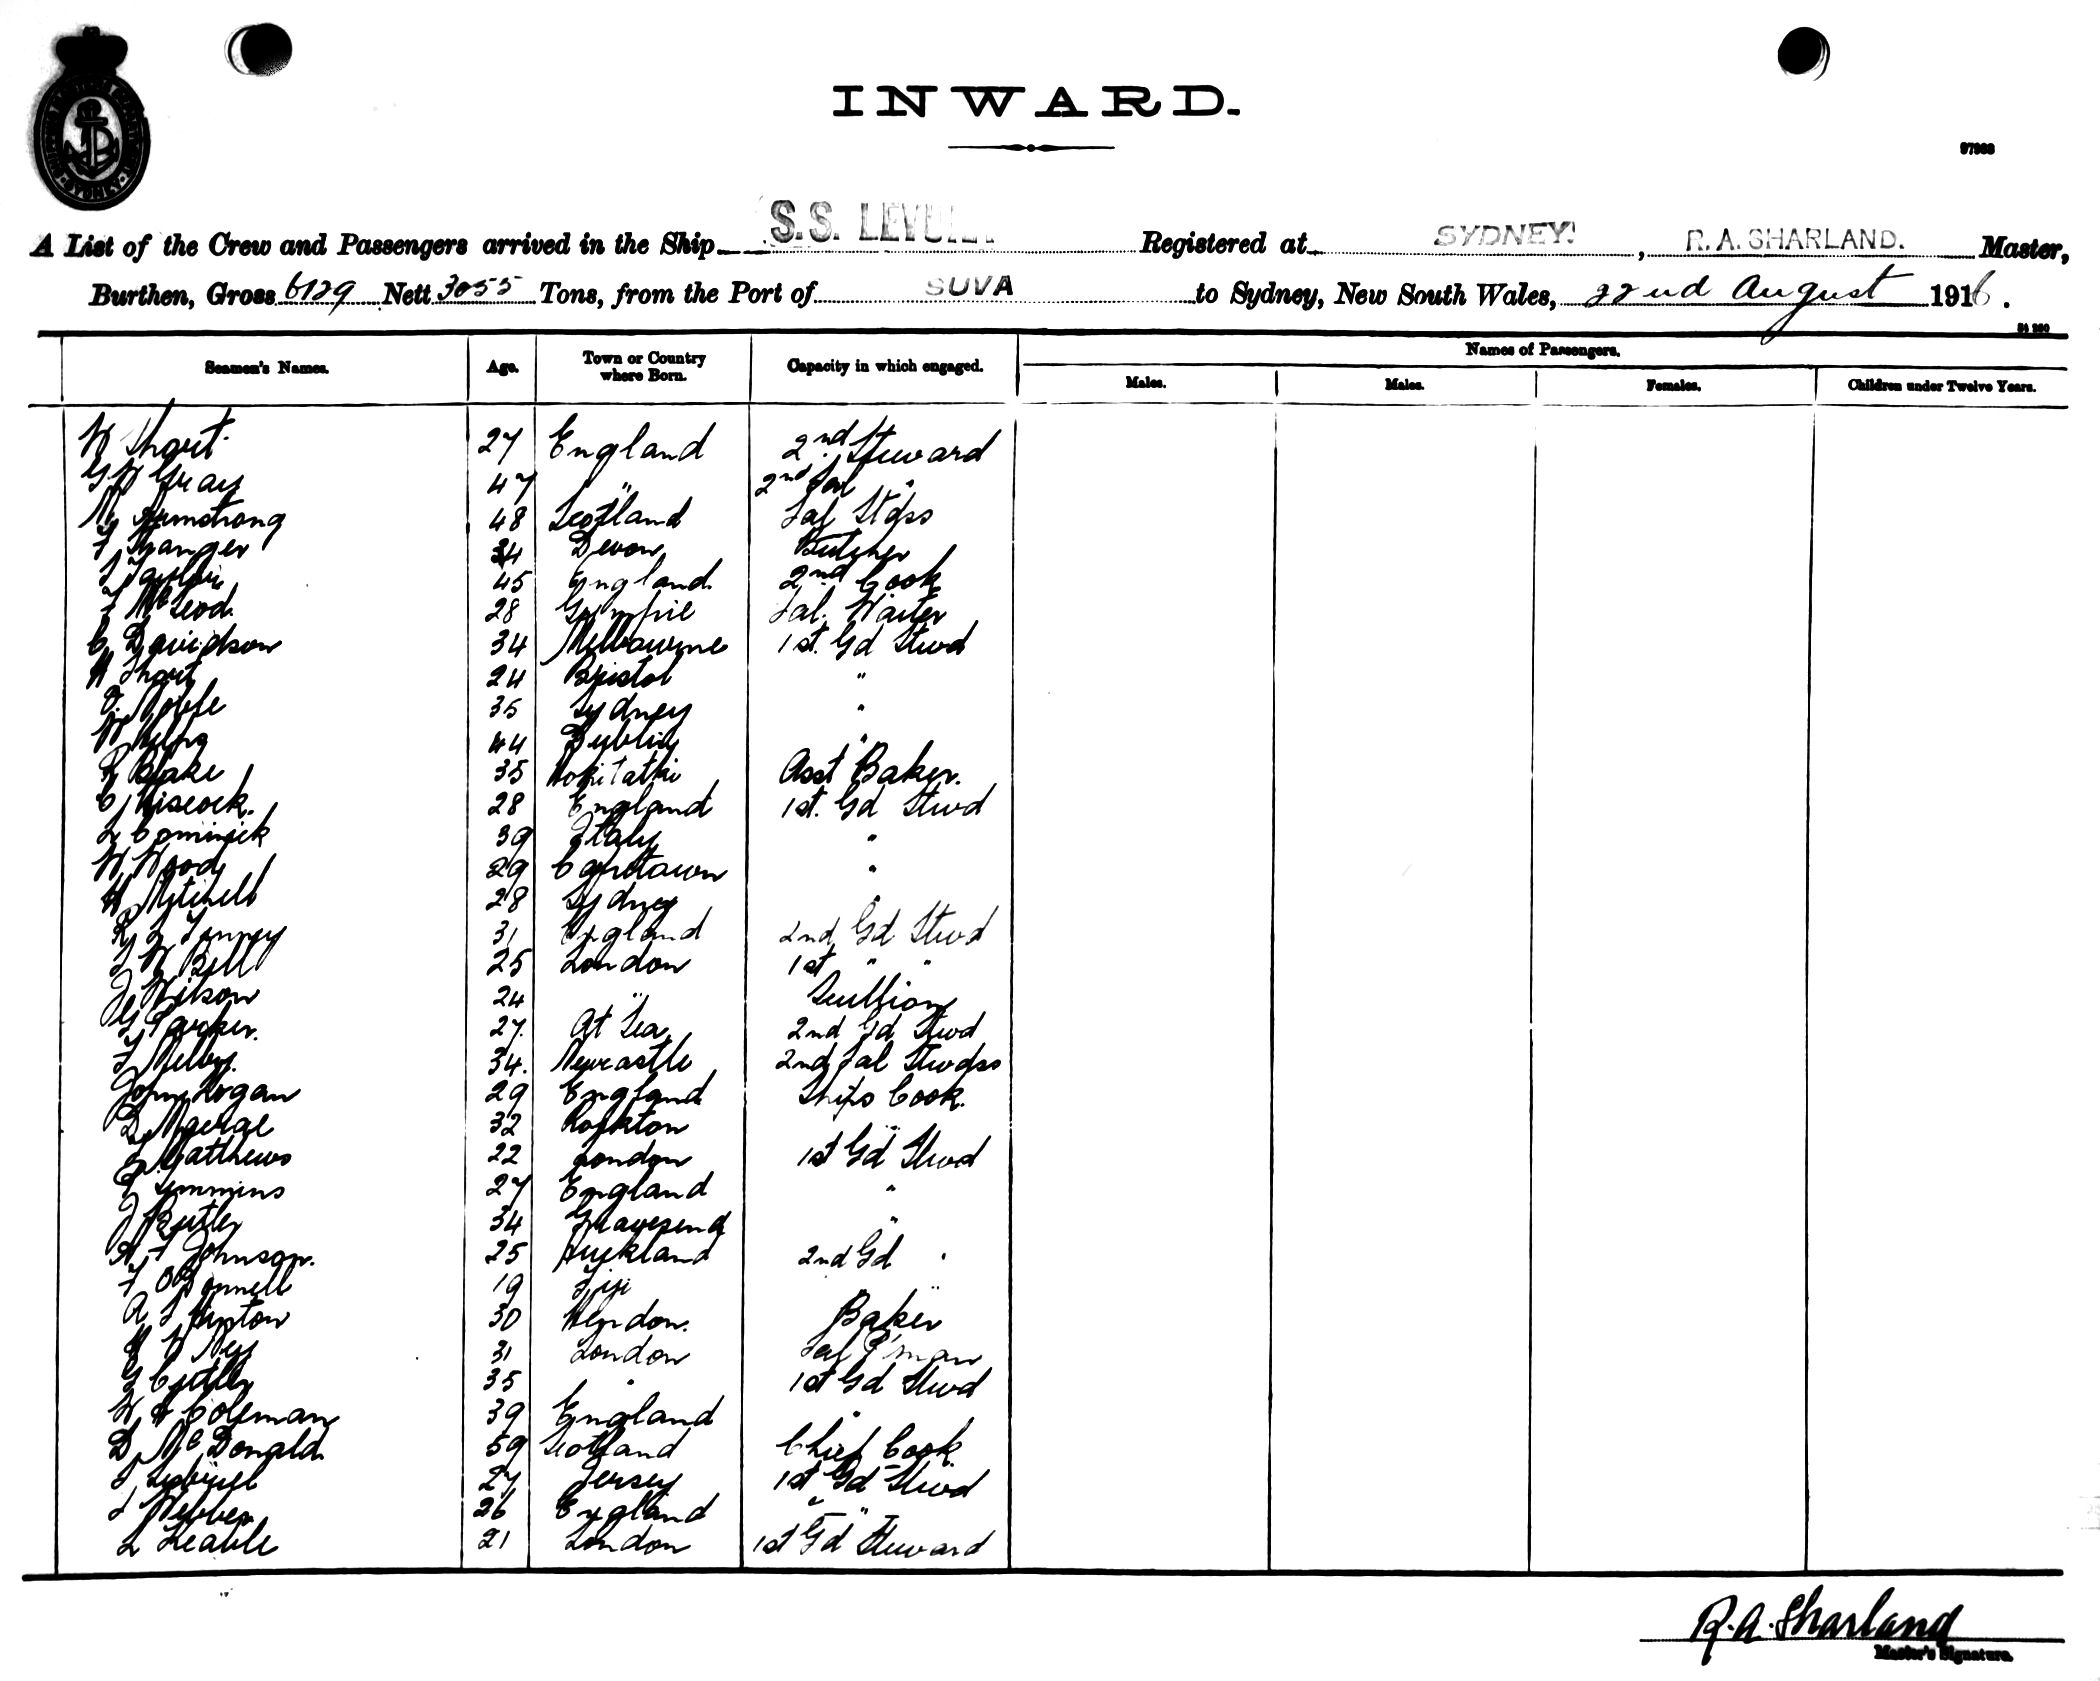 INWARD.
97988
A List of the Crew and Passengers arrived in the Ship S.S. LEVU Registered at SYDNEY. , R. A. SHARLAND. Master,
Burthen, Gross 6129 Nett 3055 Tons, from the Port of SUVA to Sydney, New South Wales, 22nd August 1916.
Seamen's Names. Age. Town or Country where Born. Capacity in which engaged. Names of Passengers.
Males. Males. Females. Children under Twelve Years.
W Short 27 England 2nd Steward
G W Gray 47 " 2nd Sal "
M Armstrong 48 Scotland Sal Stdss
F Granger 34 Devon Butcher
45 England 2nd Cook
F McLeod. 28 Gympie Sal. Waiter
C Davidson 34 Melbourne 1st. Gd Stwd
H Short 24 Bristol "
Noble 35 Sydney "
W 44 Dublin "
R Blake 35 Hokitatki Asst Baker.
C Hiscock. 28 England 1st. Gd Stwd
L Cominick 39 Italy "
W Wood 29 Capetown "
H Mitchell 28 Sydney "
R L 31 England 2nd Gd Stwd
W Bell 25 London 1st " "
J Wilson 24 " Scullion
G Parker. 27. At Sea 2nd Gd Stwd
F Melby. 34. Newcastle 2nd Sal Stwdss
John Logan 29 England Ships Cook.
32 Rockton "
Matthews 22 London 1st Gd Stwd
F Timmins 27 England "
J Butler 34 Gravesend "
A F Johnson. 25 Auckland 2nd Gd "
F O'Donnell 19 Fiji "
A S Hinton 30 Hendon. Baker
H W Ney 31 London Sal P'man
G Cutler 35 " 1st Gd Stwd
W H Coleman 39 England "
D McDonald 59 Scotland Chief Cook
27 Jersey 1st Gd Stwd
Webber 26 England " "
L Keable 21 London 1st Gd Steward
R. A. Sharland
Master's Signature.